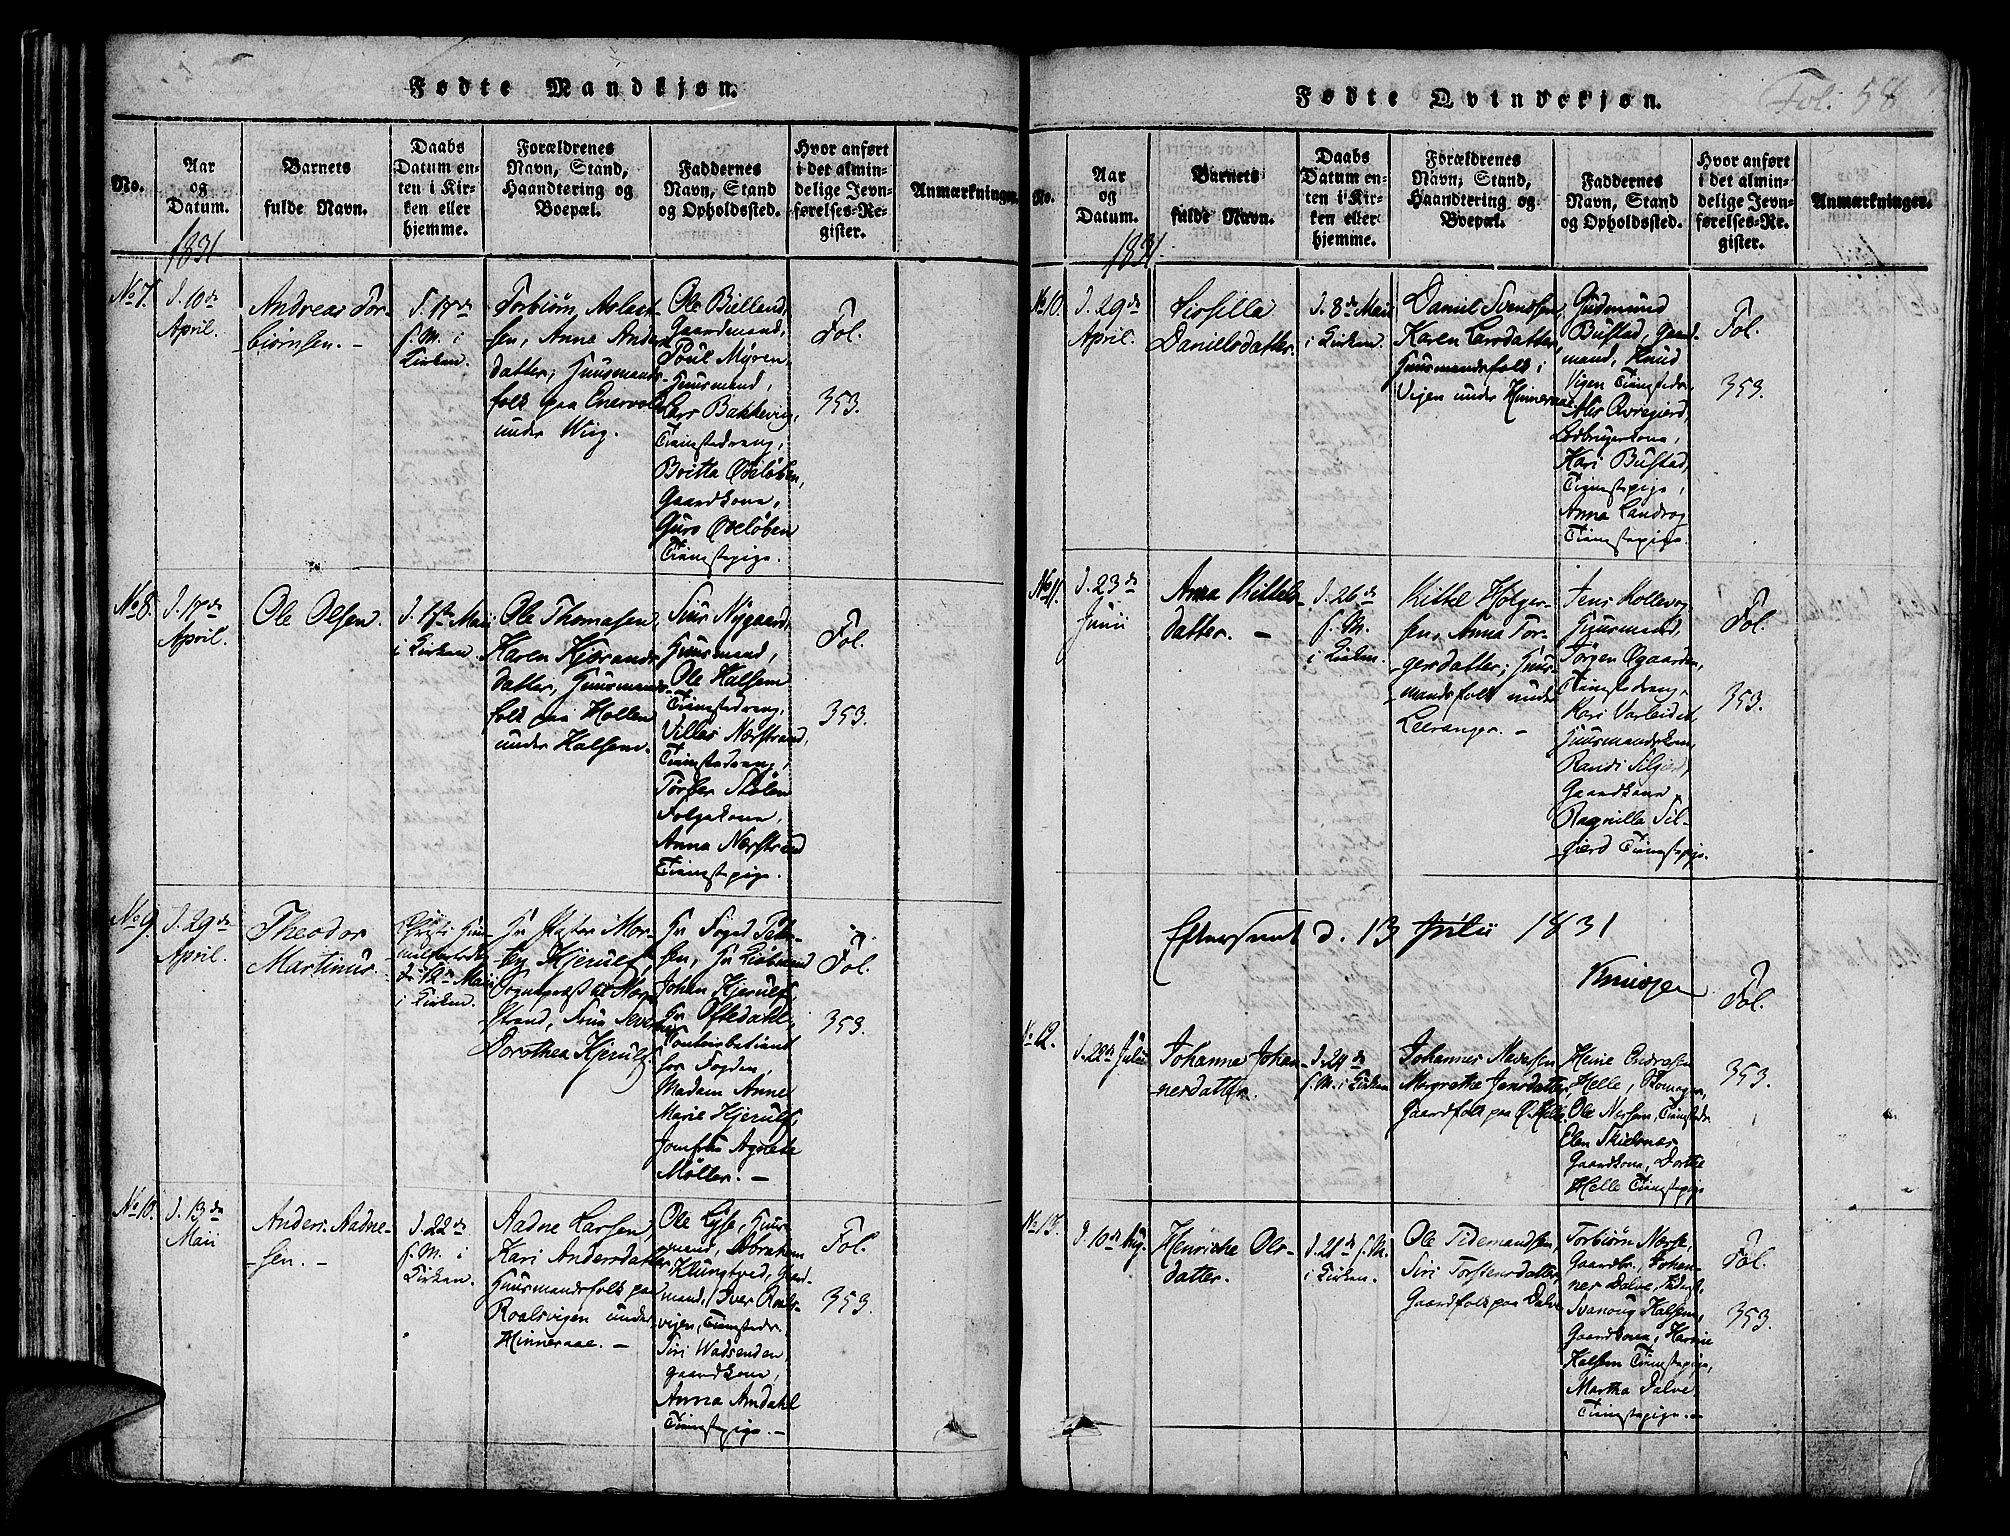 Fødte Mandkjøn.
No.
Aar
og
Datum.
Barnets
fulde Navn.
Daabs
Datum en-
ten i Kir-
ken eller
hjemme.
Forældrenes
Navn, Stand,
Haandtering og
Boepæl.
Faddernes
Navn, Stand
og Opholdssted.
Hvor anført
i det almin-
delige Jevn-
førelses-Re-
gister.
Anmærkninger.
1831
No 7.
d. 10de
April.
Andreas Tor-
biørnsen. -
d. 17de
s. M. i
Kirken.
Torbiørn Aslak-
sen, Anna Anders
datter, Huusmands-
folk paa Enervold
under Wiig.
Ole Birkeland,
Gaardmand,
Poul Myren,
Huusmand,
Lars Bakkevig,
Tienestedreng,
Britta Ødeløben,
Gaardkone,
Guro Ødeløben
Tienestepige.
Fol.
353.
No 8.
d. 17de
April.
Ole Olsen.
d. 1ste Maii
i Kirken.
Ole Thomasen,
Karen Kjerands
datter, Huusmands-
folk paa Hollen
under Halsene.
Siur Nygaard,
Huusmand,
Ole Halsene
Tienestedreng,
Villas Nærstrand,
Tienestedreng,
Torber Stølen
Folgekone,
Anna Nærstrand
Tienestepige.
Fol.
353.
No 9.
d. 29de
April.
Theodor
Martinus.
Christi Him-
melfartsd.
d. 12te Maii
i Kirken.
Hr Pastor Mor-
ten Kjerulf,
Sognepræst til Nær-
strand, Frue Severine
Dorothea Kjerulf.
Hr Foged Peter-
sen, Hr Kiøbmand
Johan Kjerulf,
Hr Oftedahl,
Contoirbetient
hos Fogden,
Madam Anne
Marie Kjerulf,
Jomfru Agnethe
Møller. -
Fol.
353.
No 10.
d. 13de
Maii
Anders Aadne-
sen. -
d. 22de
s. M. i
Kirken.
Aadne Larsen,
Kari Andersdatter
Huusmandsfolk paa
Roalsvigen under
Hinneraae. -
Ole Lyse, Huus-
mand, Abraham
Klungtved, Gaard-
mand, Iver Roals-
vigen, Tienestedr.
Siri Wadsenden,
Gaardkone,
Anna Amdahl
Tienestepige. -
Fol.
353.
Fødte Qvindekjøn.
Fol. 58
No.
Aar
og
Datum.
Barnets
fulde Navn.
Daabs
Datum en-
ten i Kir-
ken eller
hjemme.
Forældrenes
Navn, Stand,
Haandtering og
Boepæl.
Faddernes
Navn, Stand
og Opholdssted.
Hvor anført
i det almin-
delige Jevn-
førelses-Re-
gister.
Anmærkninger.
1831.
No 10.
d. 29de
April.
Sissilla
Danielsdatter.
d. 8de Maii
i Kirken.
Daniel Svendsen,
Karen Larsdatter,
Huusmandsfolk i
Vigen under Hinneraae.
Gudmund
Bustad, Gaard-
mand, Knud
Vigen Tienstedr.
Alis Øvregierd,
Ledbrugerkone,
Kari Bustad,
Tienestepige,
Anna Landrog
Tienestepige.
Fol.
353.
No 11.
d. 23de
Junii
Anna Kittels-
datter. -
d. 26de
s. M.
i Kirken.
Kittel Holger-
sen, Anna Tor-
gersdatter, Huus-
mandsfolk under
Leeranger. -
Jens Kollevog
Huusmand,
Jørgen Øgaarden,
Tienestedreng,
Kari Varleidet
Huusmandskone,
Randi Silgierd,
Gaardkone,
Ragnilla Sil-
gierd Tienestepige.
Fol.
353.
Efterseet d. 13 Julii 1831
Knudsen
No 12.
d. 22de Julii
Johanna Johan-
nesdatter.
d. 24de
s. M. i Kirken
Johannes Madsen
Margrethe Jensdatter,
Gaardfolk paa Ø. Helle.
Heine Endresen
Helle,
Ole Nessen, Tienestedr.
Elen Skielsnes
Gaardkone, Dorthe
Helle Tienestepige
Fol.
353.
No 13.
d. 10de Aug.
Henriche Ols-
datter.
d. 21de s. M.
i Kirken.
Ole Tidemandsen,
Siri Torstensdatter,
Gaardfolk paa Dalve
Torbiørn Nærse,
Gaardbr., Johan-
nes Dalve, Tiened.,
Svanoug Halsene,
Gaardkone, Karine
Halsene Tienestepige,
Martha Dalve
Tienestepige. -
Fol.
353.